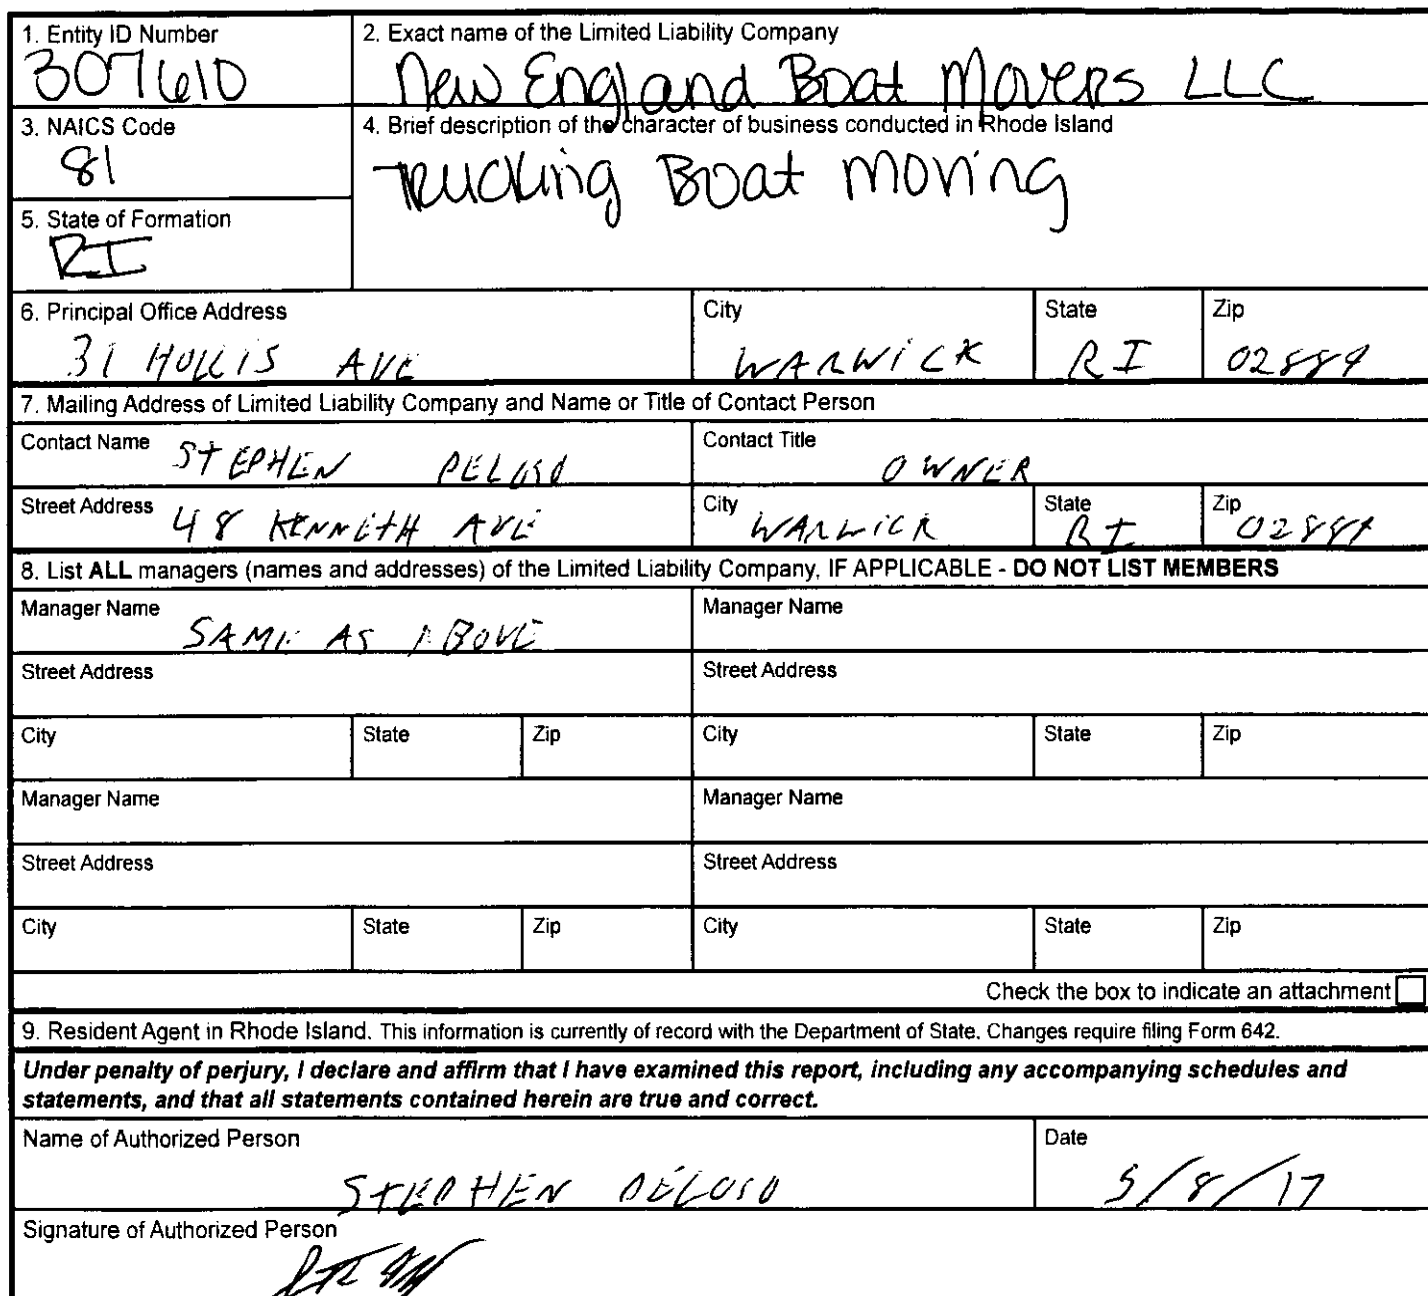 1. Entity ID Number 2. Exact name of the Limited Liability Company
307610 New England Boat Movers LLC
3. NAICS Code 4. Brief description of the character of business conducted in Rhode Island
81 Trucking Boat moving
5. State of Formation
RI
6. Principal Office Address City State Zip
31 HOLLIS AVE WARWICK RI 02889
7. Mailing Address of Limited Liability Company and Name or Title of Contact Person
Contact Name STEPHEN PELOSO Contact Title OWNER
Street Address 48 KENNETH AVE City WARWICK State RI Zip 02889
8. List ALL managers (names and addresses) of the Limited Liability Company, IF APPLICABLE - DO NOT LIST MEMBERS
Manager Name SAME AS ABOVE Manager Name
Street Address Street Address
City State Zip City State Zip
Manager Name Manager Name
Street Address Street Address
City State Zip City State Zip
Check the box to indicate an attachment
9. Resident Agent in Rhode Island. This information is currently of record with the Department of State. Changes require filing Form 642.
Under penalty of perjury, I declare and affirm that I have examined this report, including any accompanying schedules and
statements, and that all statements contained herein are true and correct.
Name of Authorized Person Date
STEPHEN PELOSO 5/8/17
Signature of Authorized Person